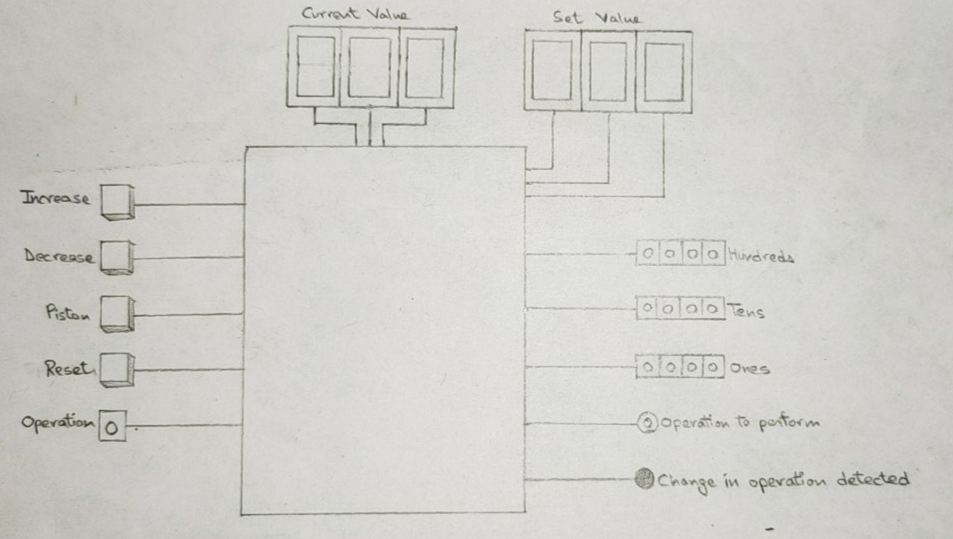 Current Value
Set Value
Increase
Decrease
Piston
Reset
Operation
0
0 0 0 0 Hundreds
0 0 0 0 Tens
0 0 0 0 Ones
0 Operation to perform
Change in operation detected